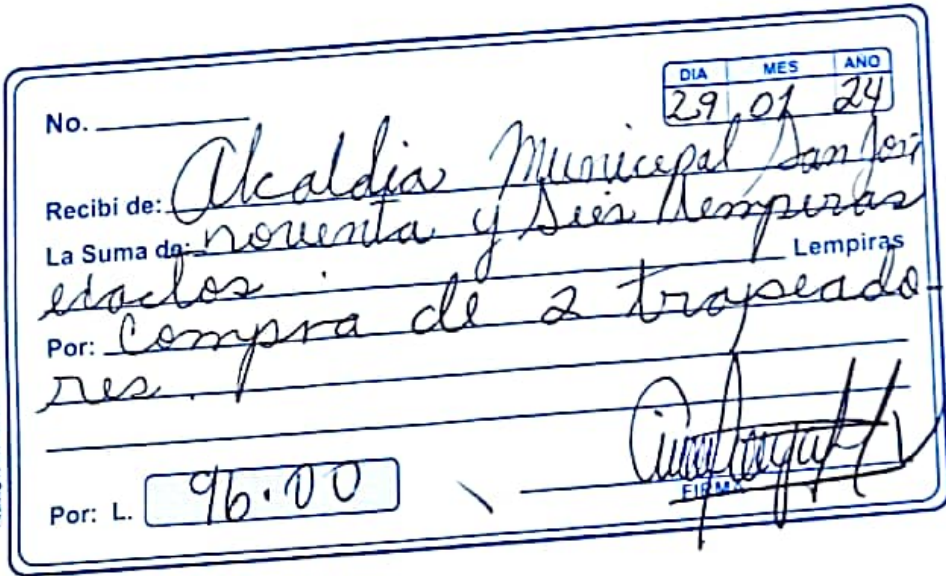 DIA MES AÑO
29 01 24
No.
Recibi de: Alcaldia Municipal San José
La Suma de: noventa y Seis Lempiras
exactos. Lempiras
Por: Compra de 2 trapeado-
res.
Por: L. 96.00
FIRMA